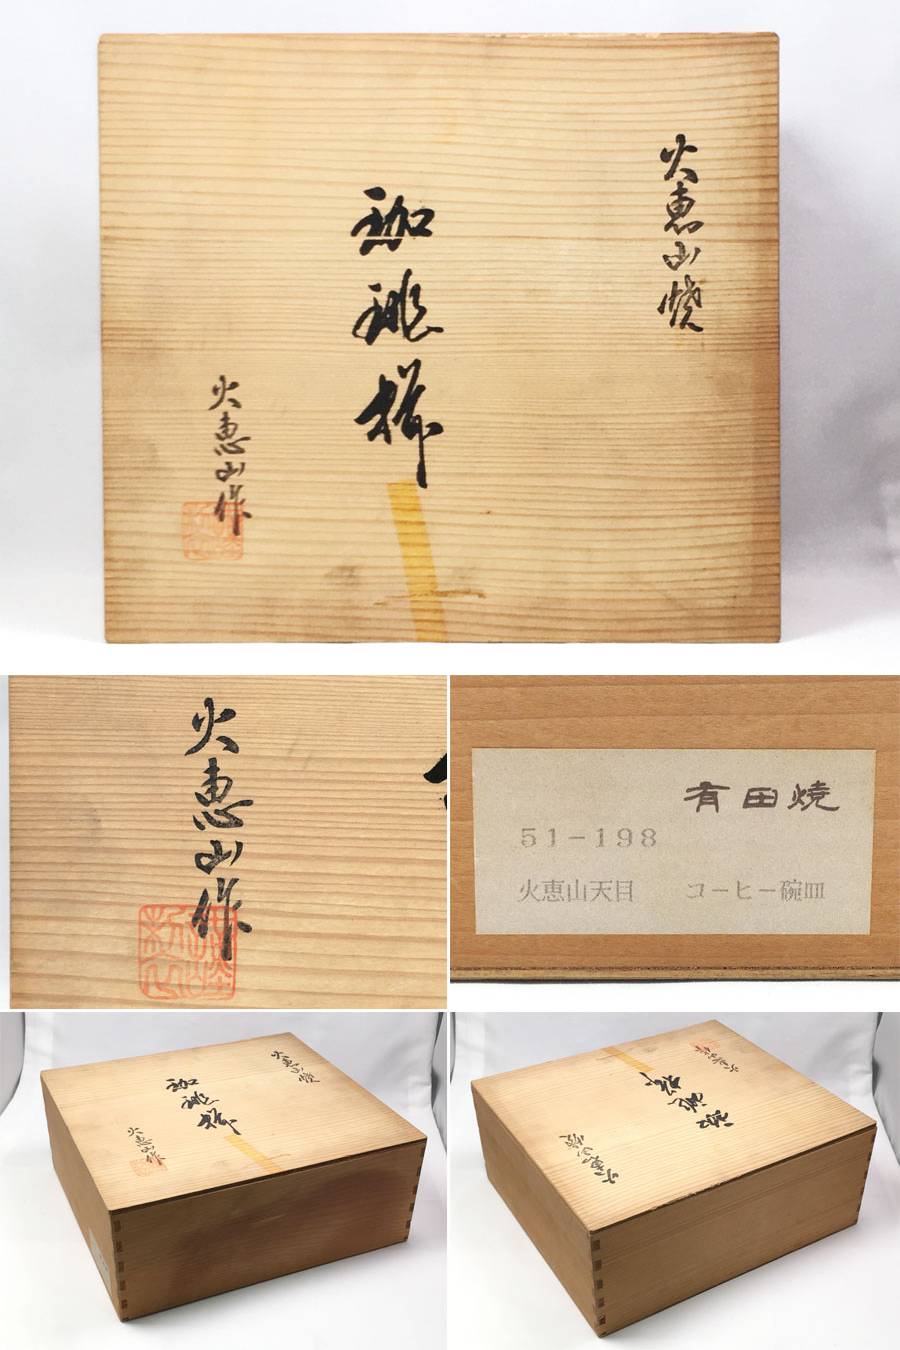 火恵山焼
珈琲揃
火恵山作
火恵山作
有田焼
51-198
火恵山天目　コーヒー碗皿
火恵山焼
珈琲揃
火恵山作
火恵山焼
珈琲揃
火恵山作